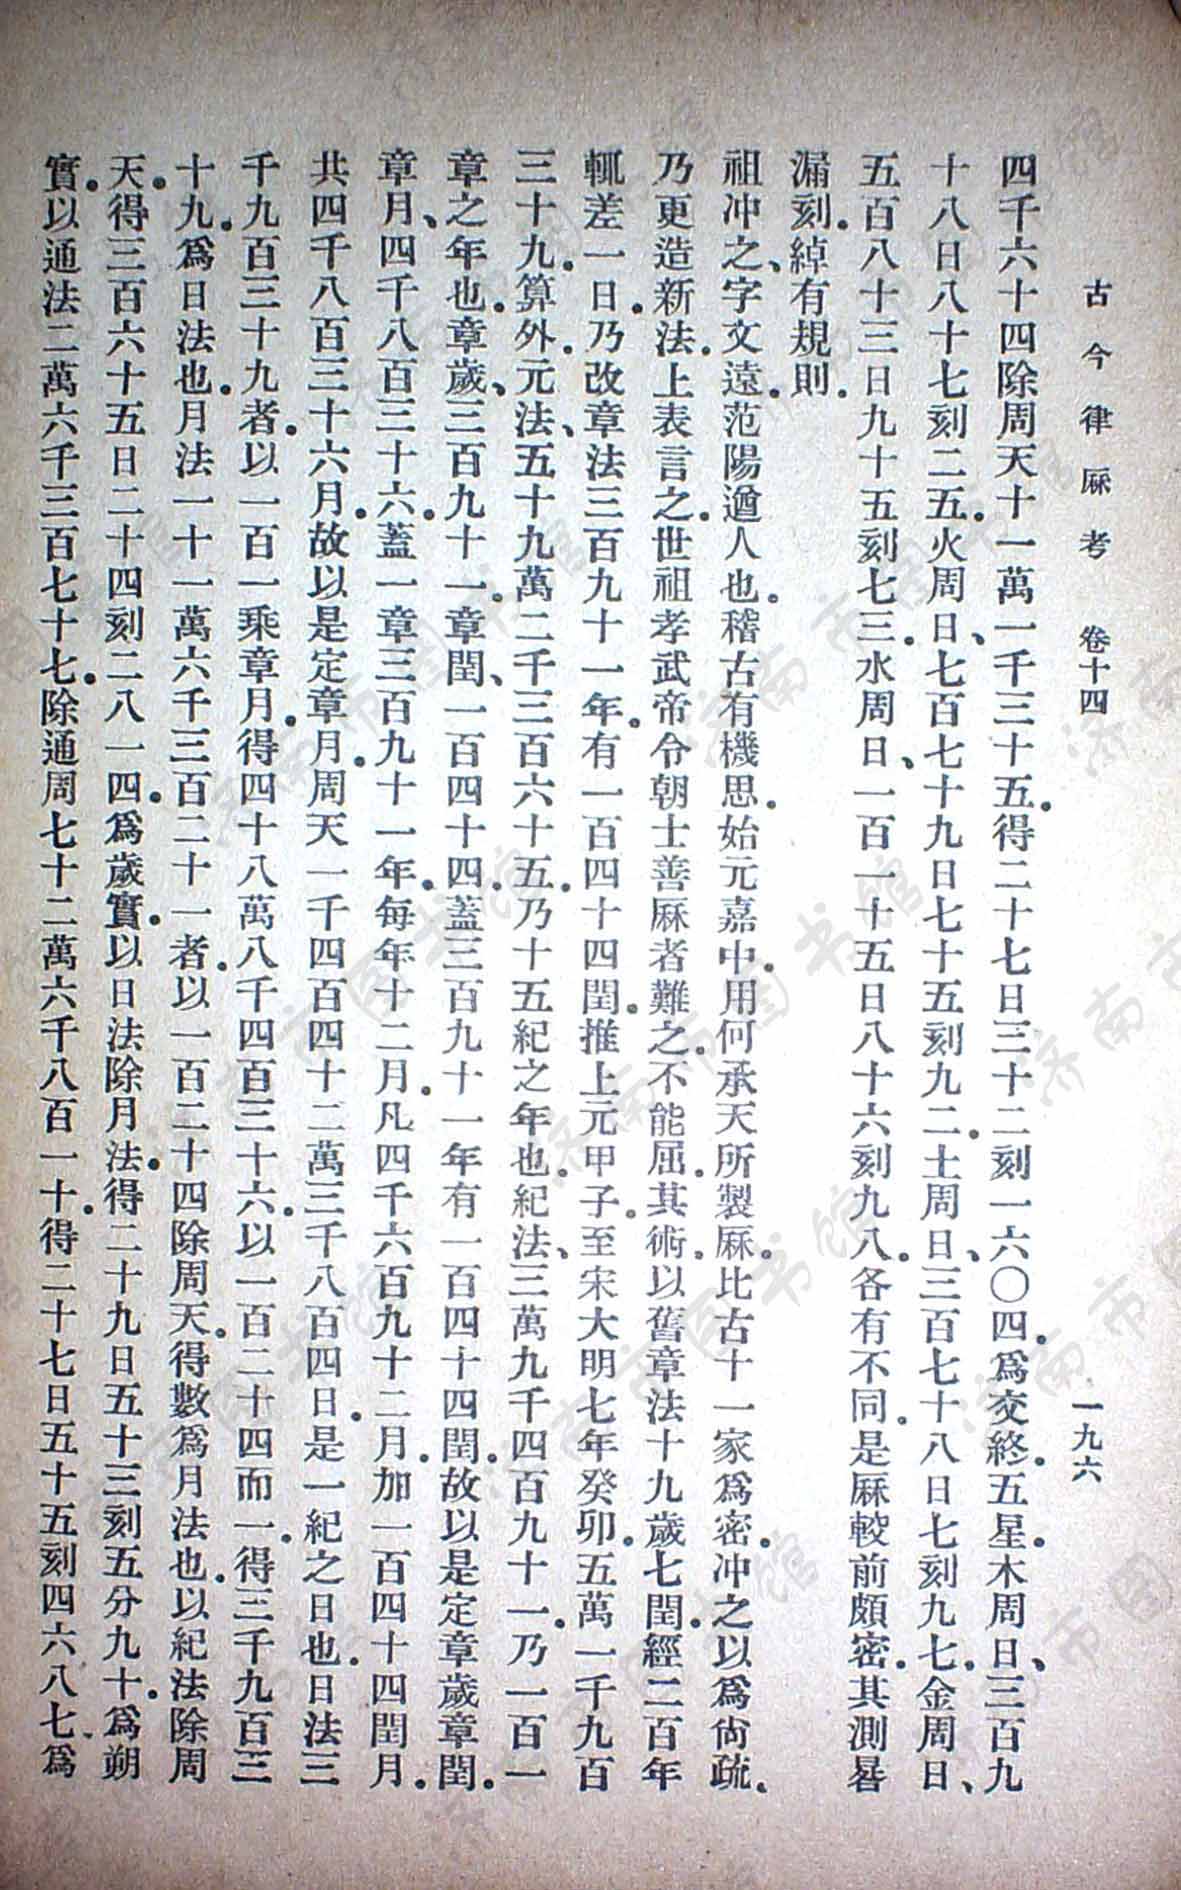 古今律厤考 卷十四 一九六
四千六十四除周天十一萬一千三十五。得二十七日三十二刻一六〇四。爲交終。五星。木周日、三百九
十八日八十七刻二五。火周日、七百七十九日七十五刻九二。土周日、三百七十八日七刻九七。金周日、
五百八十三日九十五刻七三。水周日、一百一十五日八十六刻九八。各有不同。是厤較前頗密。其測晷
漏刻。綽有規則。
祖冲之、字文遠。范陽遒人也。稽古有機思。始元嘉中。用何承天所製厤。比古十一家爲密。冲之以爲尙疏、
乃更造新法。上表言之。世祖孝武帝令朝士善厤者難之。不能屈。其術。以舊章法十九歲七閏。經二百年
輒差一日。乃改章法三百九十一年。有一百四十四閏。推上元甲子。至宋大明七年癸卯。五萬一千九百
三十九。算外。元法、五十九萬二千三百六十五。乃十五紀之年也。紀法、三萬九千四百九十一。乃一百一
章之年也。章歲、三百九十一。章閏、一百四十四。蓋三百九十一年有一百四十四閏。故以是定章歲章閏。
章月、四千八百三十六。蓋一章三百九十一年。每年十二月。凡四千六百九十二月。加一百四十四閏月。
共四千八百三十六月。故以是定章月。周天一千四百四十二萬三千八百四日。是一紀之日也。日法三
千九百三十九者。以一百一乘章月。得四十八萬八千四百三十六。以一百二十四而一。得三千九百三
十九。爲日法也。月法一十一萬六千三百二十一者。以一百二十四除周天。得數爲月法也。以紀法除周
天。得三百六十五日二十四刻二八一四。爲歲實。以日法除月法。得二十九日五十三刻五分九十。爲朔
實。以通法二萬六千三百七十七。除通周七十二萬六千八百一十。得二十七日五十五刻四六八七。爲